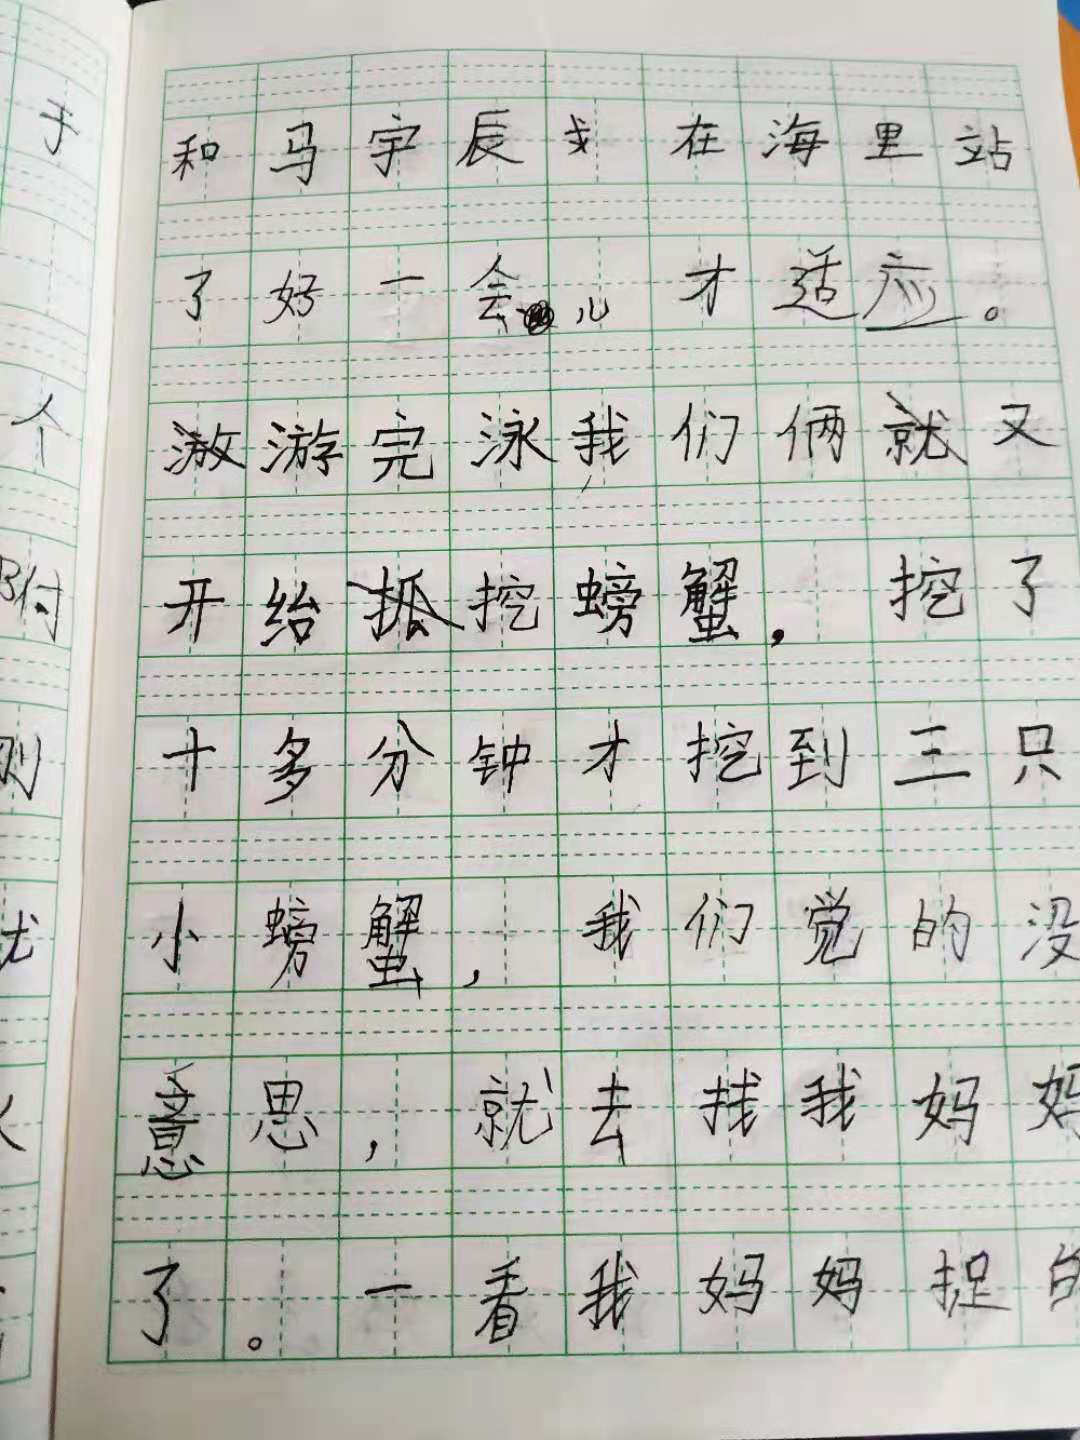 和马宇辰在海里站
了好一会儿才适应。
游完泳我们俩就又
开始挖螃蟹，挖了
十多分钟才挖到三只
小螃蟹，我们觉的没
意思，就去找我妈妈
了。一看我妈妈捉的
于
个
附
则